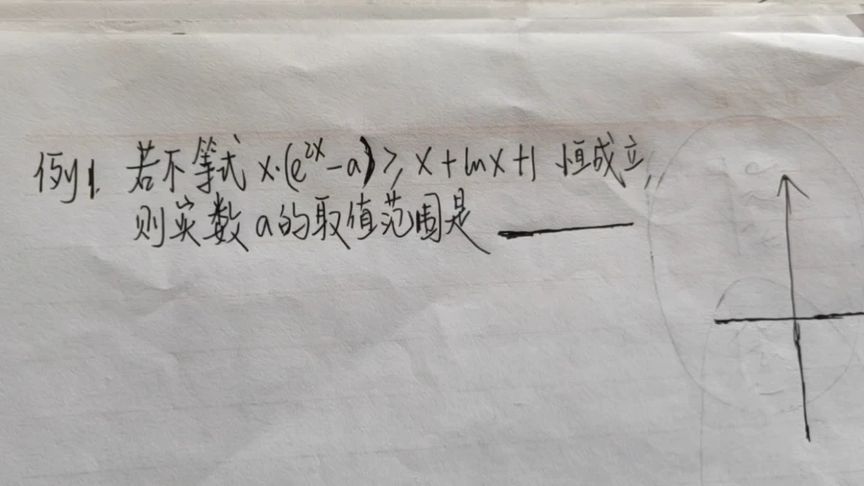 例1. 若不等式 x·(e^{2x}-a)≥x+lnx+1 恒成立,
则实数a的取值范围是 ______